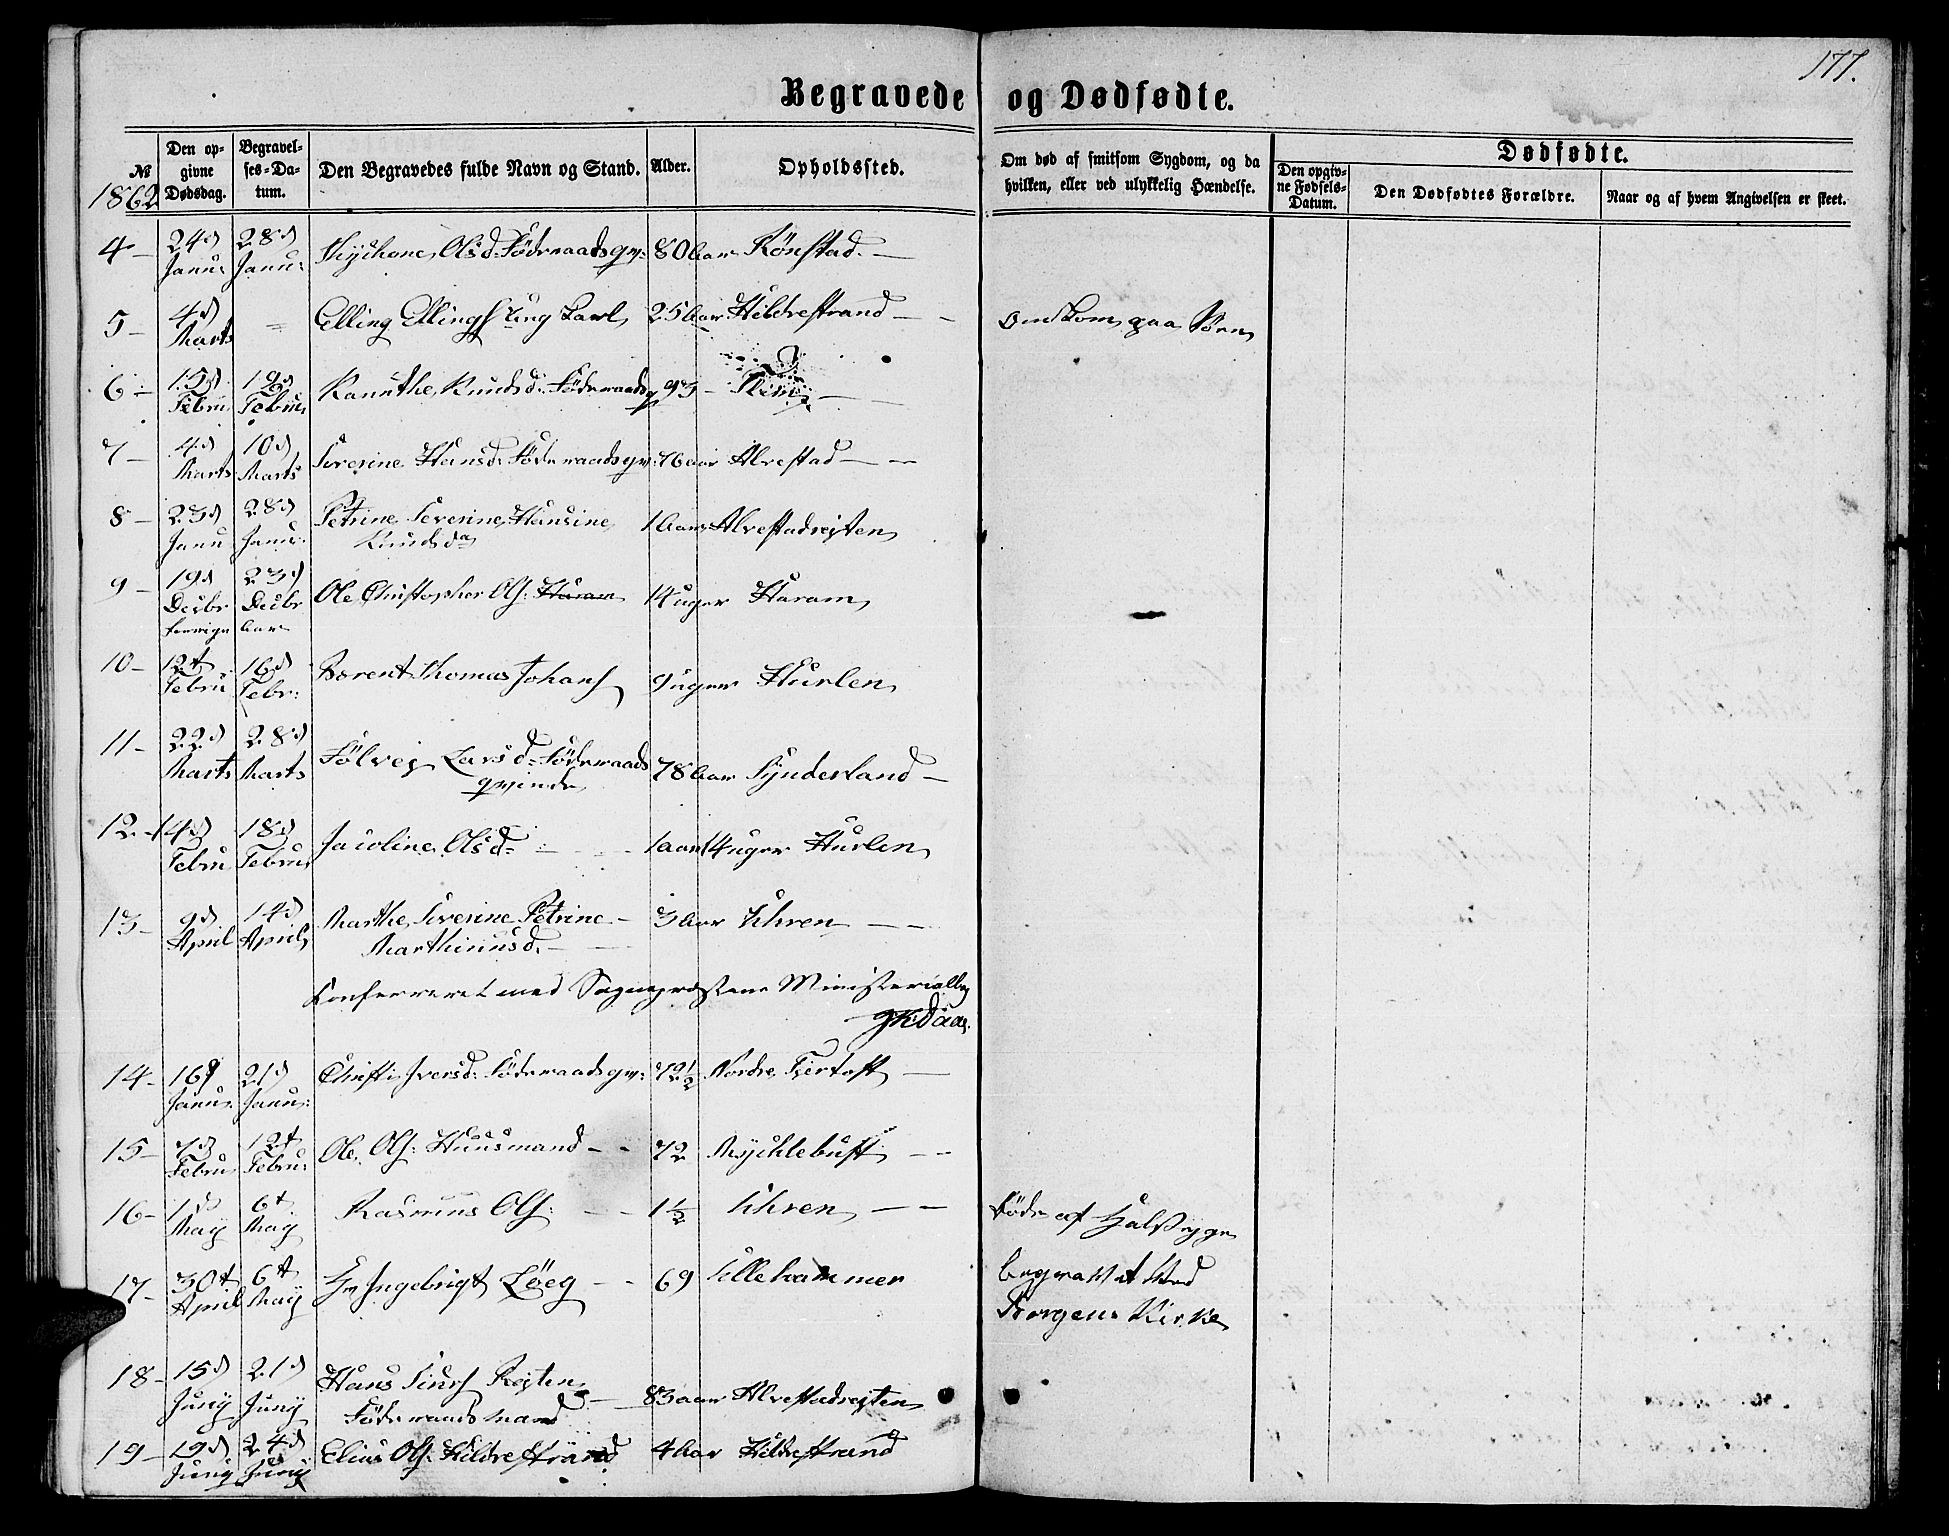 177.
Begravede og Dødfødte.
№
1862
Den opgivne Dødsdag.
Begravelses-Datum.
Den Begravedes fulde Navn og Stand.
Alder.
Opholdssted.
Om død af smitsom Sygdom, og da hvilken, eller ved ulykkelig Hændelse.
Dødfødte.
Den opgivne Fødsels-Datum.
Den Dødfødtes Forældre.
Naar og af hvem Angivelsen er skeet.
4 – 24d Janu: 28d Janu: Olsd: Föderaadsqv: 80 aar Rönstad. –
5 – 4d Marts = Elling Ellings. ung Karl 25 aar Hildrestrand – – omkom paa
6 – 15d Febru 19d Febru Knudsd: Föderaadsq 93 – Flem –
7 – 4d Marts 10d Marts Severine Hansd: Föderaadsqv: 76 aar Alvestad – –
8 – 23d Janu 28d Janu: Petrine Severine Hansine 1 aar Alvestadrejten
Knudsda
9 – 19d Decbr 23d Decbr Ole Christopher Ols: Haram 14 uger Haram
forrige Aar
10 – 12t Febru 16d Febr: Berent Thomas Johans 9 uger Hurlen
11 – 22d Marts 28d Marts Sölvej Larsd: Föderaads 78 aar Synderland –
qvinde
12 – 14d Febru 18d Febru Jacoline Olsd: 1 aar 14 uger Hurlen
13 – 9d April 14d April Marthe Severine Petrine – 3 aar Uhren – –
Marthinusd. –
Konfereret med Sognepræstens Ministerialbog
JKDaae.
14 – 16d Janu: 21d Janu: Christi Iversd: Föderaadsqv: 72½ Nordre Fjertoft –
15 – 7d Febru 12t Febru: Ole Ols: Huusmand – – 72 Myklebust – –
16 – 1d May 6t May Rasmus Ols: – – 1½ Uhren – – Döde af Halssyge
17 – 30t April 6t May Ingebrigt Löeg – – 69 Ullehammer begravet ved
Borgens Kirke
18 – 15d Juny 21d Juny Hans Siurs Rejten – 83 aar Alvestadrejten
Föderaadsmand
19 – 19d Juny 24d Juny Elias Ols: Hildrestrand 4 aar Hildrestrand